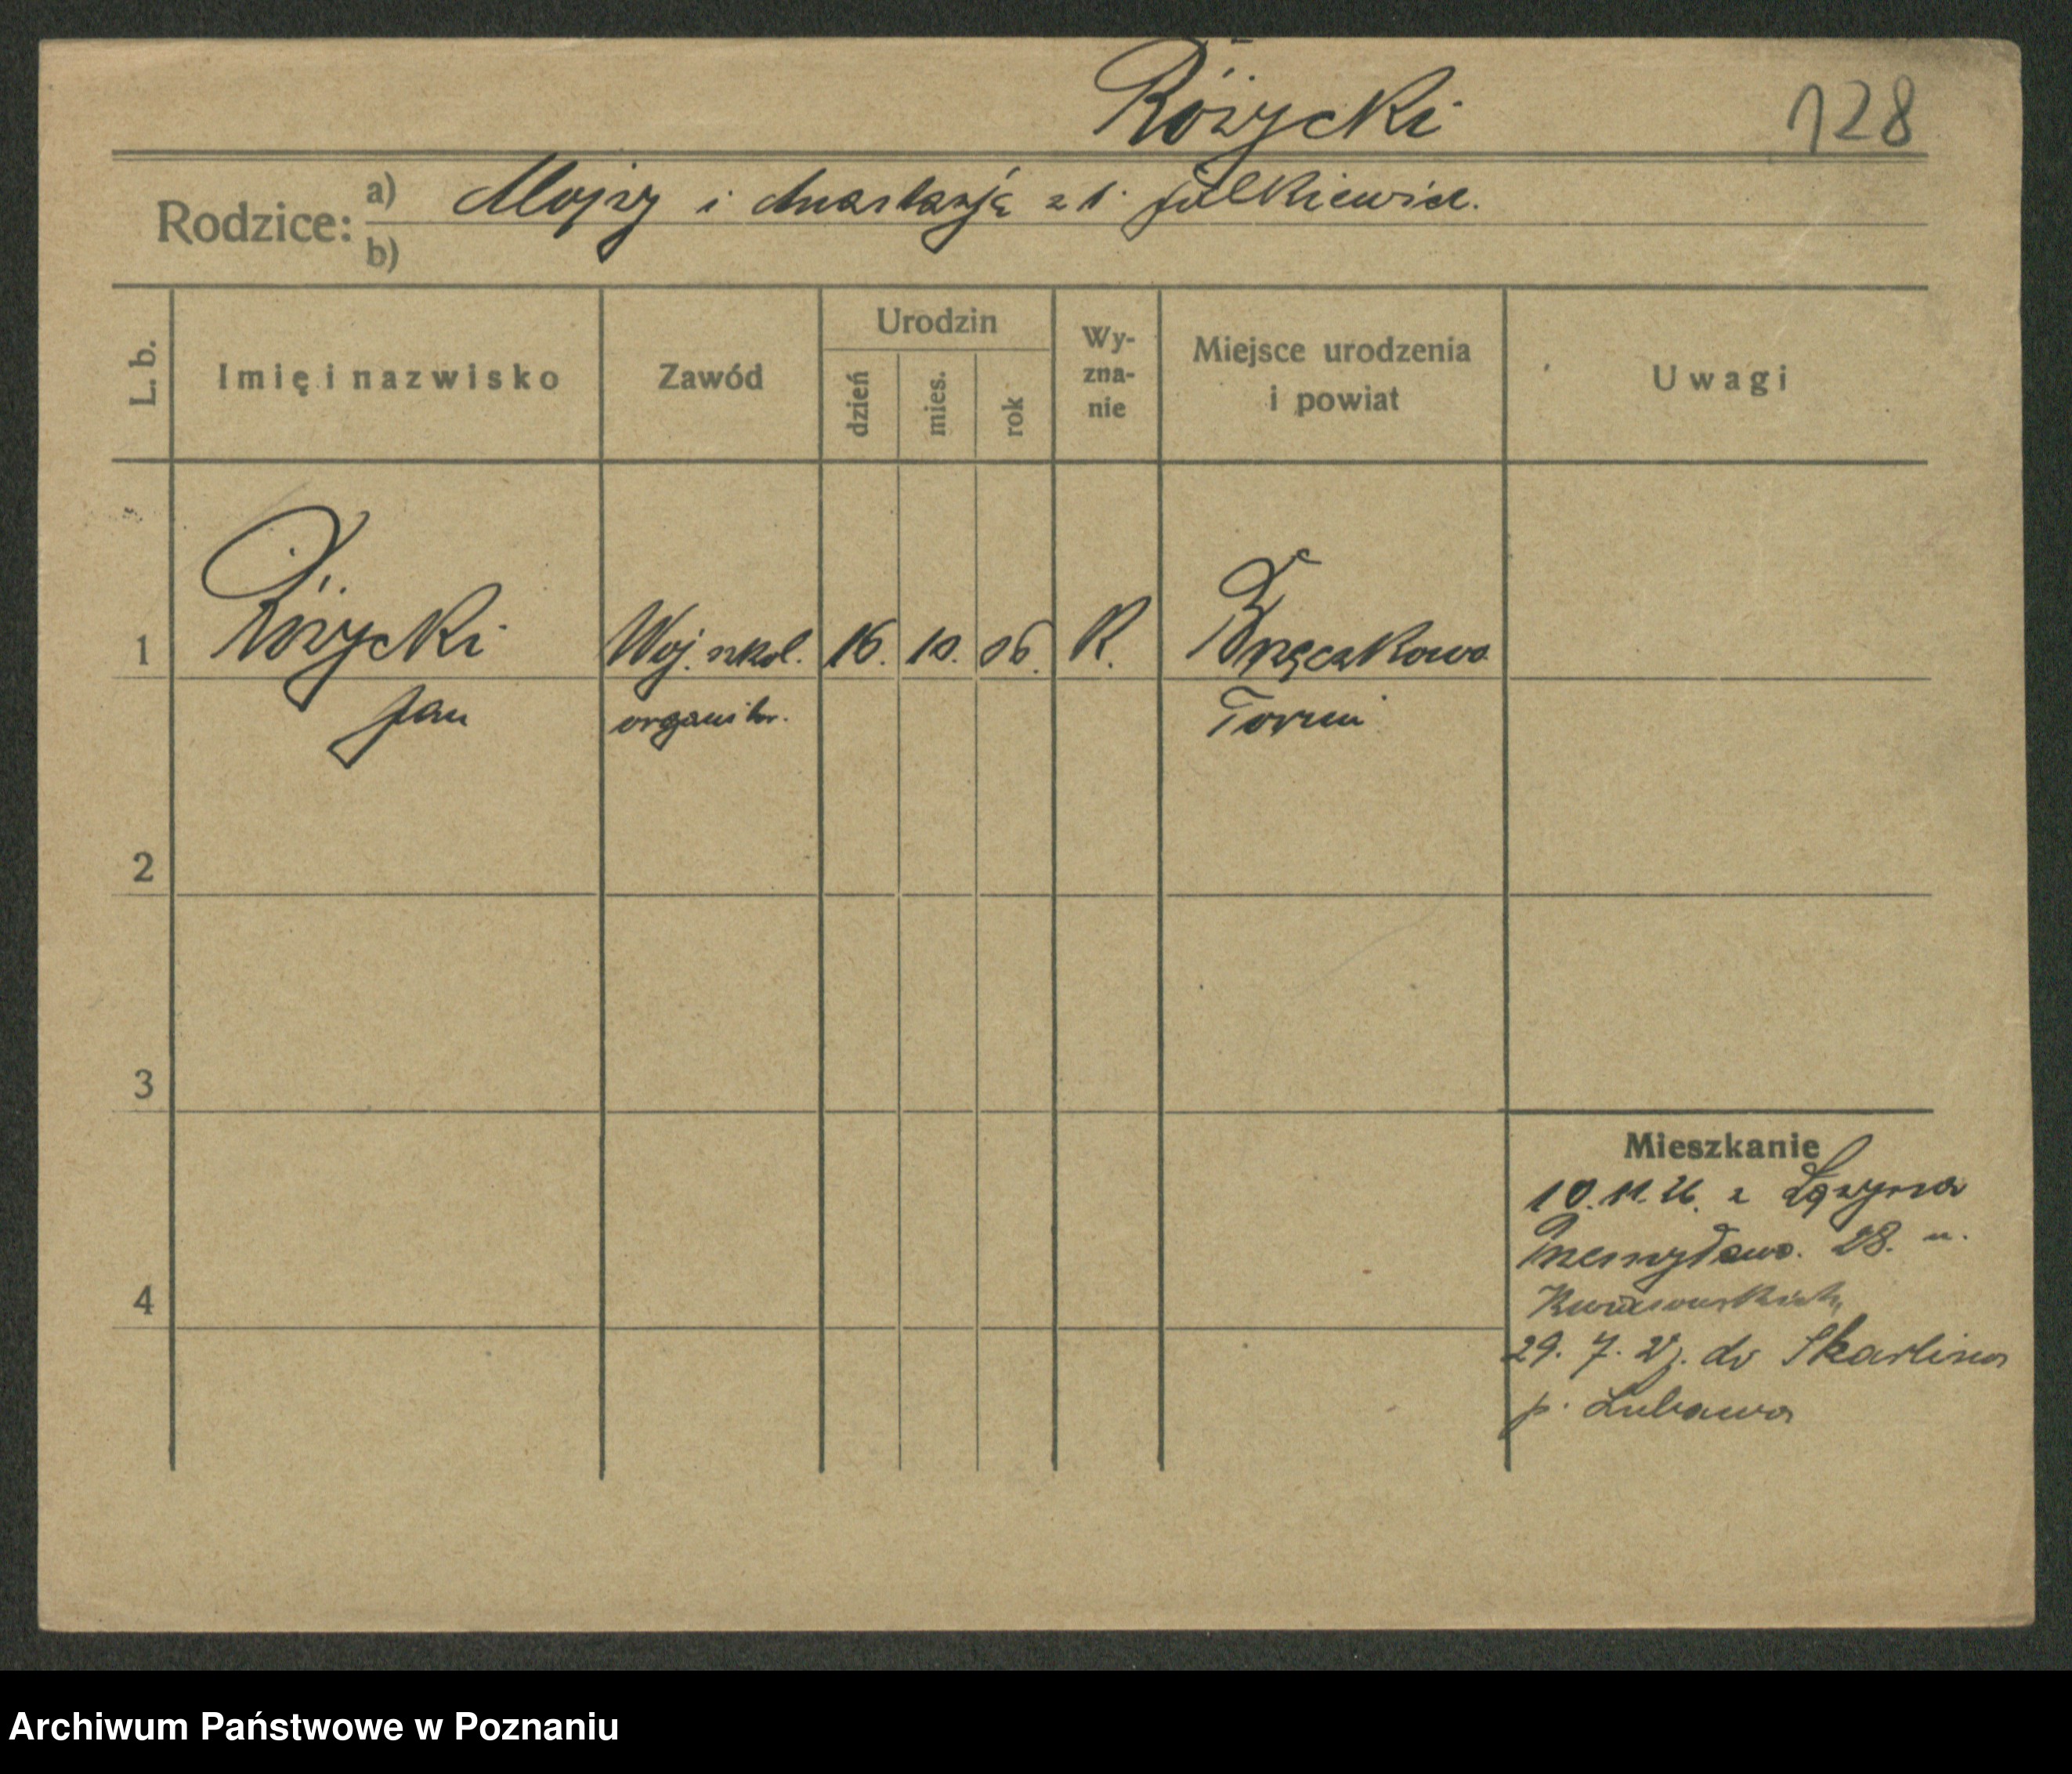 Różycki 128
Rodzice: a) Alojzy i Anastazja z d. Julkiewicz.
b)
L. b. Imię i nazwisko Zawód Urodzin dzień mies. rok Wy-zna-nie Miejsce urodzenia i powiat Uwagi
1 Różycki Woj. szkol. 16. 10. 06. R.
Jan organiz. Toruń
2
3
4
Mieszkanie
10.11.26. z Łążyna
Przemysława. 28. u.
29. 7. 27. do Skarlina
p. Lubawa
Archiwum Państwowe w Poznaniu